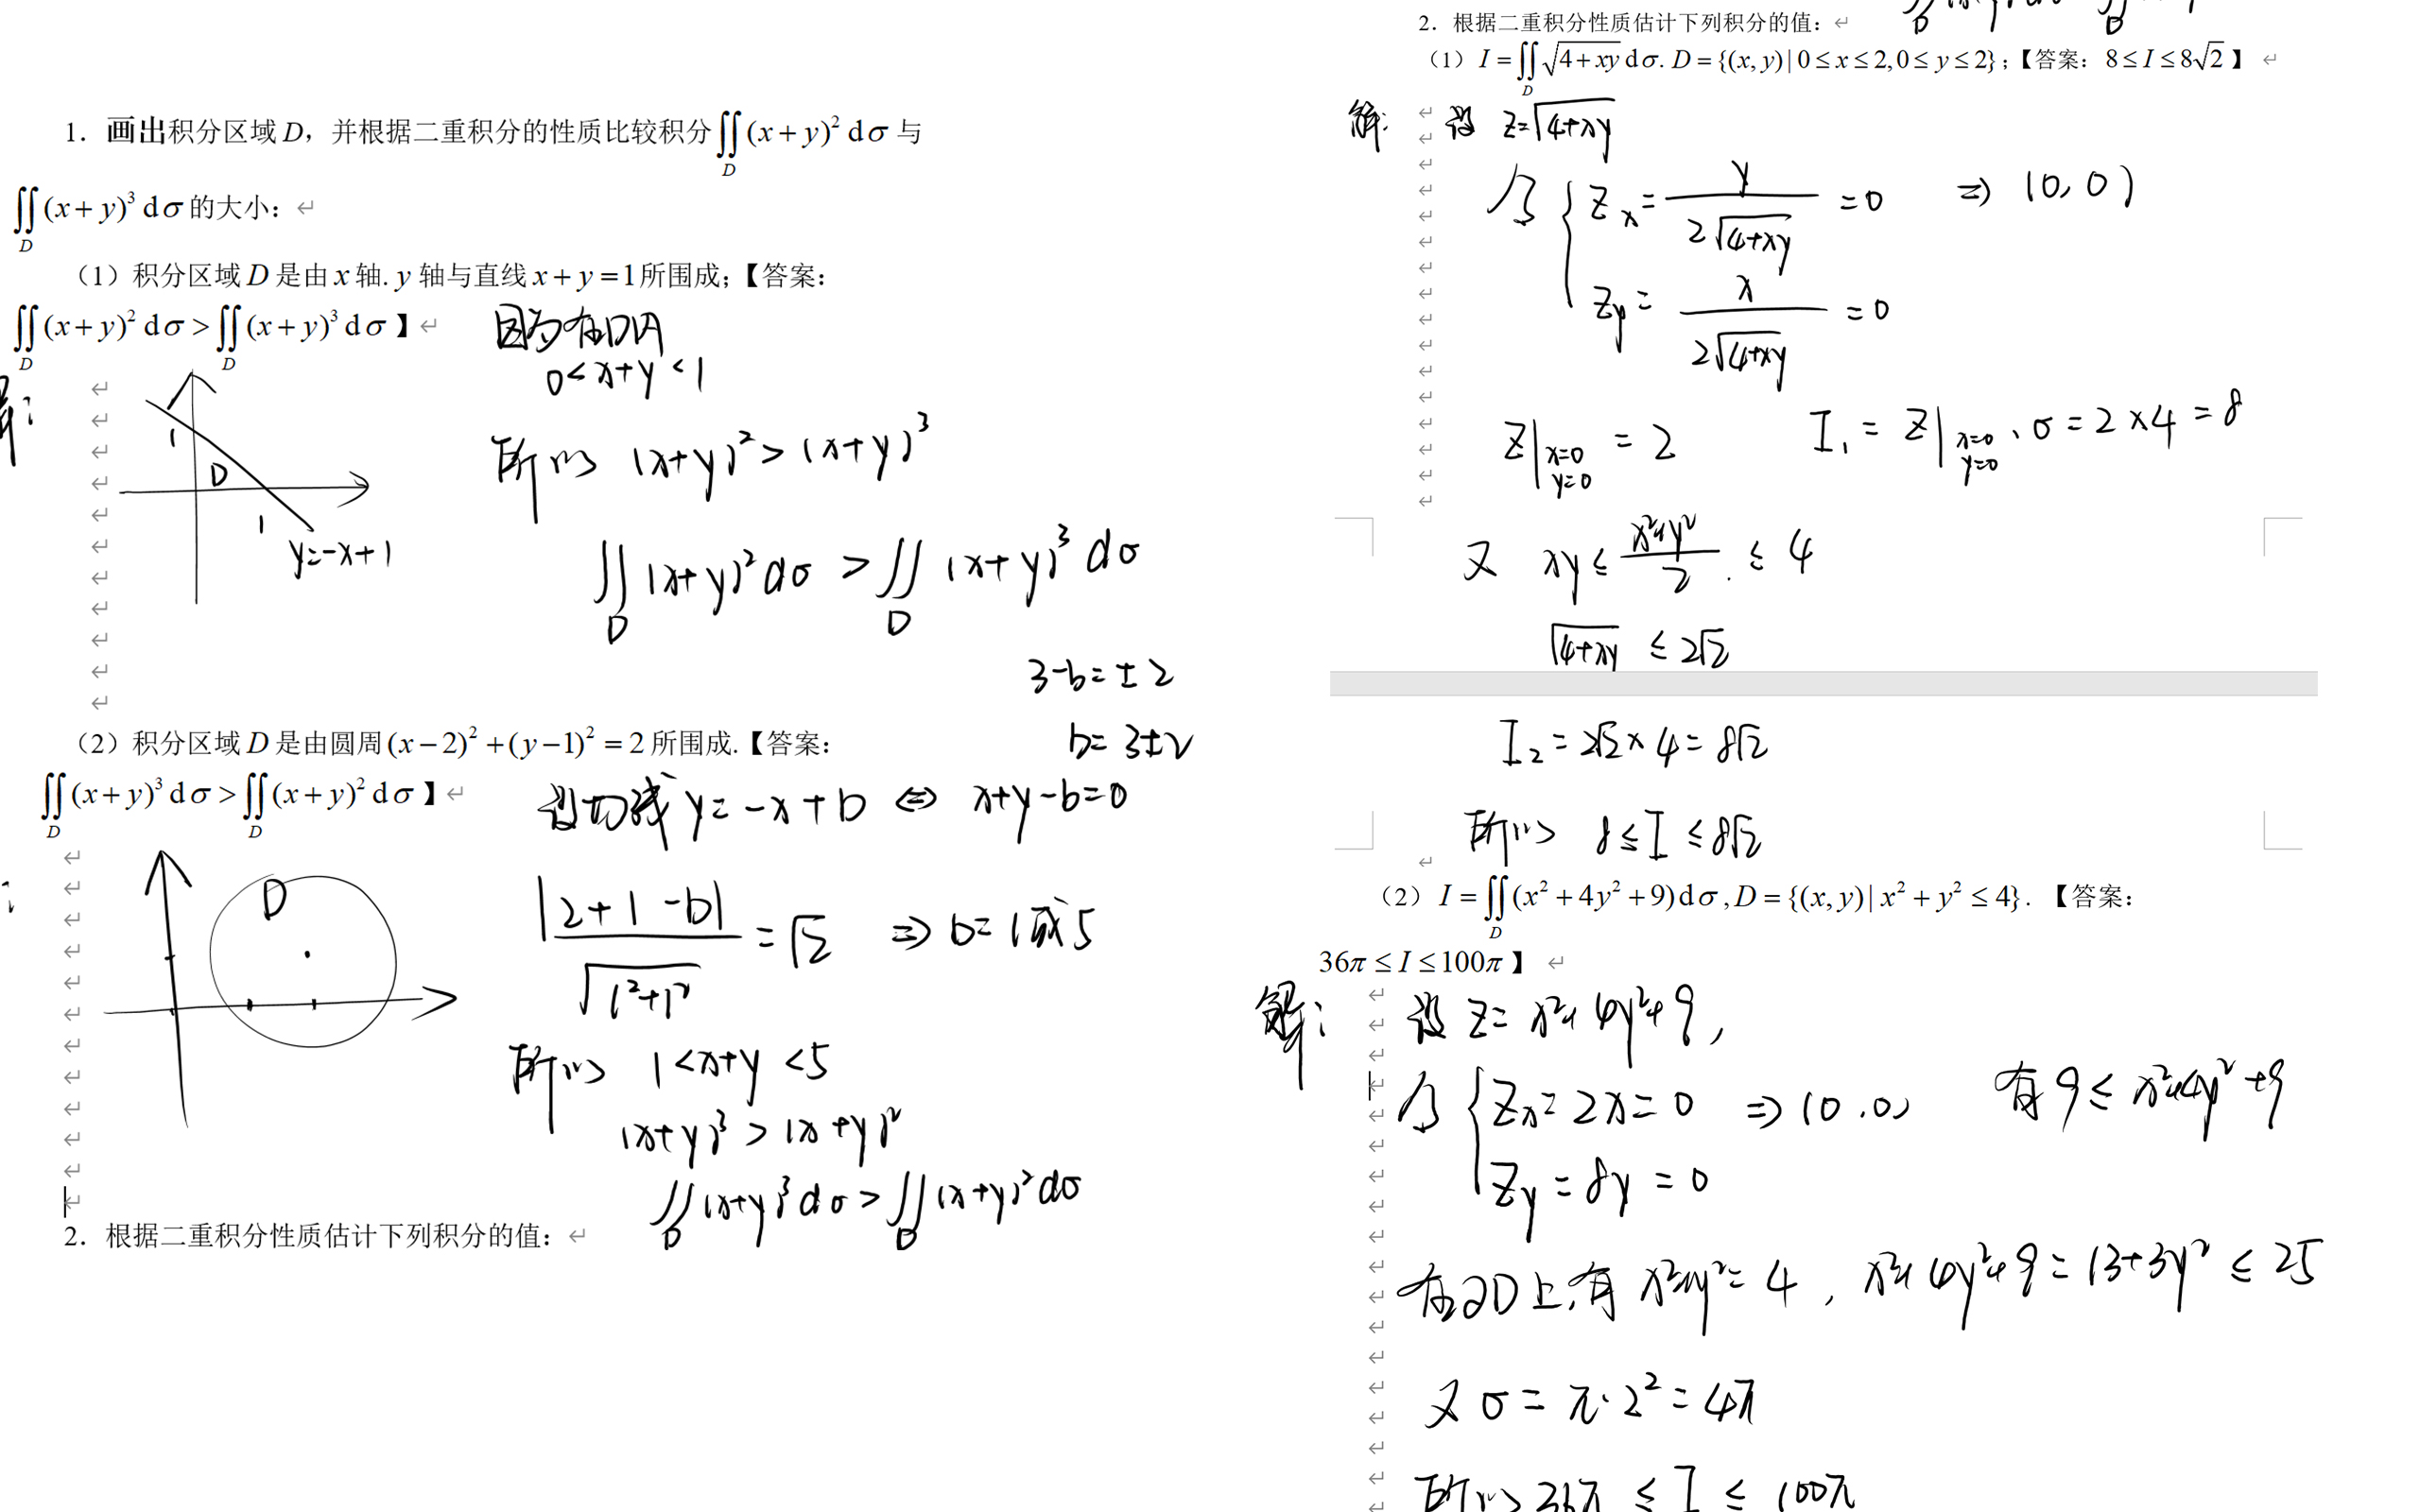 1. 画出积分区域 D，并根据二重积分的性质比较积分∬_D (x+y)² dσ 与
∬_D (x+y)³ dσ 的大小：
（1）积分区域 D 是由 x 轴. y 轴与直线 x+y=1 所围成；【答案：
∬_D (x+y)² dσ > ∬_D (x+y)³ dσ】
因为在D内
0<x+y<1
所以 (x+y)² > (x+y)³
∬_D (x+y)² dσ > ∬_D (x+y)³ dσ
1
D
1
y=-x+1
3-b=±2
b=3±2
（2）积分区域 D 是由圆周 (x−2)²+(y−1)²=2 所围成.【答案：
∬_D (x+y)³ dσ > ∬_D (x+y)² dσ】
设切线 y=-x+b ⇔ x+y-b=0
D
|2+1-b| / √(1²+1²) = √2 ⇒ b=1或5
所以 1<x+y<5
(x+y)³ > (x+y)²
∬_D (x+y)³ dσ > ∬_D (x+y)² dσ
2. 根据二重积分性质估计下列积分的值：
2. 根据二重积分性质估计下列积分的值：
（1）I=∬_D √(4+xy) dσ. D={(x,y)|0≤x≤2,0≤y≤2}；【答案：8≤I≤8√2】
解: 设 z=√(4+xy)
令 { z_x = y / 2√(4+xy) = 0 ⇒ (0,0)
z_y = x / 2√(4+xy) = 0
z|x=0 y=0 = 2 I₁ = z|x=0 y=0 · σ = 2×4 = 8
又 xy ≤ (x²+y²)/2 ≤ 4
√(4+xy) ≤ 2√2
I₂ = 2√2×4 = 8√2
所以 8≤I≤8√2
（2）I=∬_D (x²+4y²+9)dσ, D={(x,y)|x²+y²≤4}. 【答案：
36π≤I≤100π】
解: 设 z=x²+4y²+9,
令 { z_x=2x=0 ⇒ (0,0) 有 9≤x²+4y²+9
z_y=8y=0
在∂D上,有 x²+y²=4, x²+4y²+9=13+3y²≤25
又 σ=π·2²=4π
所以 36π≤I≤100π